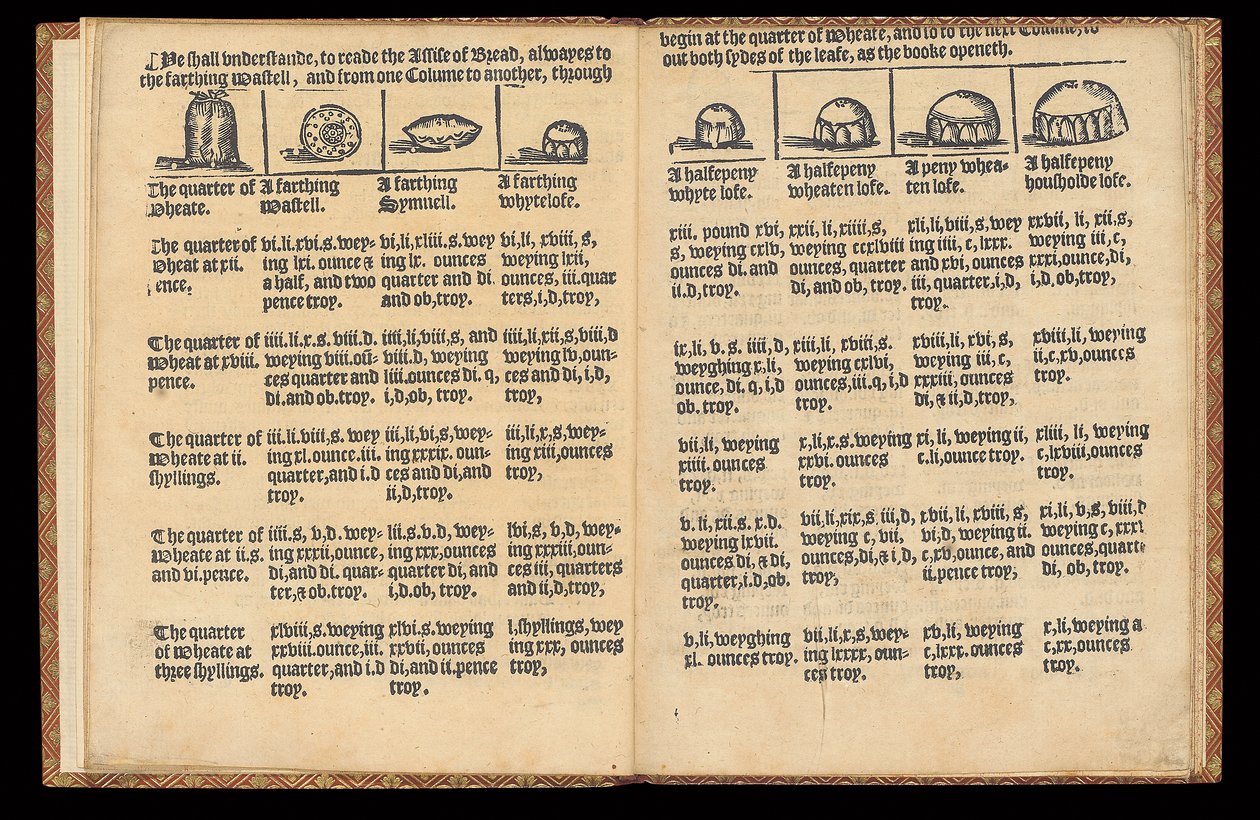 Ye shall vnderstande, to reade the Assise of Bread, alwayes to
the farthing wastell, and from one Colume to another, through
The quarter of
Wheate.
A farthing
Wastell.
A farthing
Symnell.
A farthing
whytelofe.
The quarter of
Wheat at xii.
pence.
vi.li.xvi.s. wey-
ing lxi. ounce &
a half, and two
pence troy.
vi,li,xliii.s. wey
ing lx. ounces
quarter and di.
and ob,troy.
vi,li, xviii, s,
weying lxii,
ounces, iii.quar
ters,i,d,troy,
The quarter of
Wheat at xviii.
pence.
iiii.li.x.s. viii.d.
weying viii.oũ-
ces quarter and
di.and ob.troy.
iiii,li,viii,s, and
viii.d, weying
liii.ounces di. q,
i,d,ob, troy.
iiii,li,xii,s,viii,d
weying lv,oun-
ces and di, i,d,
troy,
The quarter of
Wheate at ii.
shyllings.
iii.li.viii,s. wey
ing xl.ounce.iii.
quarter,and i.d
troy.
iii,li,vi,s, wey-
ing xxxix. oun-
ces and di,and
ii,d,troy.
iii,li,x,s, wey-
ing xiii,ounces
troy,
The quarter of
Wheate at ii.s.
and vi.pence.
iiii.s, v,d. wey-
ing xxxii,ounce,
di,and di. quar-
ter,& ob.troy.
lii.s.v.d, wey-
ing xxx,ounces
quarter di, and
i,d.ob, troy.
lvi,s, v,d, wey-
ing xxxiii,oun-
ces iii, quarters
and ii,d,troy,
The quarter
of Wheate at
three shyllings.
xlviii,s. weying
xxviii.ounce,iii.
quarter,and i.d
troy.
xlvi.s. weying
xxvii, ounces
di,and ii.pence
troy.
l,shyllings,wey
ing xxx, ounces
troy,
begin at the quarter of Wheate, and so to the next Colume, to
out both sydes of the leafe, as the booke openeth.
A halfepeny
whyte lofe.
A halfepeny
wheaten lofe.
A peny whea-
ten lofe.
A halfepeny
housholde lofe.
xiii. pound xvi,
s, weying cxlv,
ounces di. and
ii.d,troy.
xxii, li,xiiii,s,
weying ccxlviii
ounces, quarter
di, and ob, troy.
xli,li,viii,s,wey
ing iiii, c,lxxx.
and xvi, ounces
iii, quarter,i,d,
troy.
xxvii, li, xii,s,
weying iii,c,
xxxi,ounce,di,
i,d,ob,troy,
ix,li, v. s. iiii,d,
weyghing x,li,
ounce, di. q, i,d
ob. troy.
xiii,li, xviii.s.
weying cxlvi,
ounces,iii.q, i,d
troy.
xviii,li, xvi, s,
weying iii, c,
xxxiii, ounces
di, & ii,d,troy,
xviii.li, weying
ii,c,xv,ounces
troy.
vii,li, weying
xiiii. ounces
troy.
x,li,x.s.weying
xxvi. ounces
troy.
xi, li, weying ii,
c.li,ounce troy.
xliii, li, weying
c,lxviii,ounces
troy.
v. li, xii.s. x.d.
weying lxvii.
ounces di, & di,
quarter,i.d,ob.
troy.
vii,li,xix,s,iii,d,
weying c, vii,
ounces,di,& i,d,
troy;
xvii, li, xviii, s,
vi,d, weying ii.
c,xv,ounce, and
ii.pence troy;
xi,li, v,s, viii,d
weying c, xxxv
ounces,quarte
di, ob, troy.
v,li,weyghing
xl. ounces troy.
vii,li,x,s,wey-
ing lxxxx, oun-
ces troy.
xv,li, weying
c,lxxx.ounces
troy,
x,li,weying a
c,xx,ounces
troy.